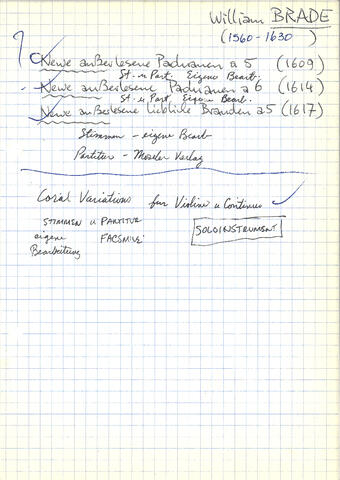 William BRADE
(1560-1630)
Newe außerlesene Paduanen a 5 (1609)
St. u Part. Eigene Bearb.
Newe außerlesene Paduanen a 6 (1614)
St. u Part. Eigene Bearb.
Newe außerlesene liebliche Branden a5 (1617)
Stimmen - eigene Bearb
Partitur - Moseler Verlag
Coral Variations für Violine u Continuo
STIMMEN u PARTITUR
SOLOINSTRUMENT
eigene FACSMILE
Bearbeitung